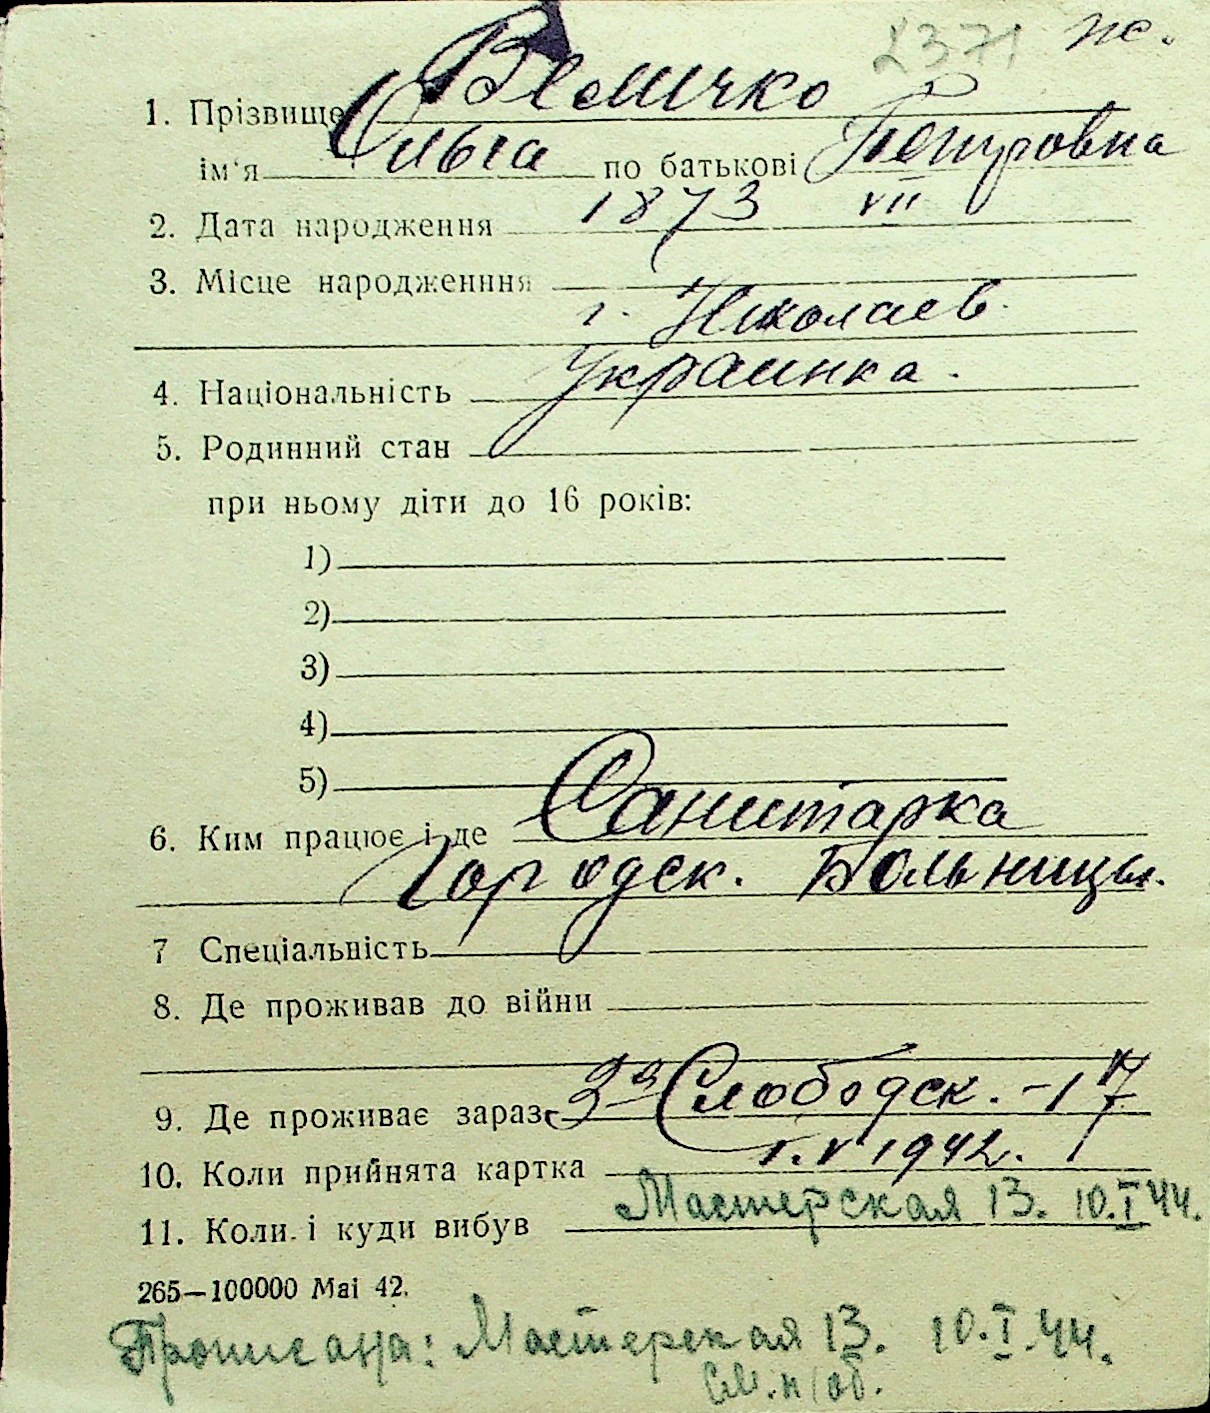 2371 ж.
1. Прізвище Величко
ім'я Ольга по батькові Петровна
2. Дата народження 1873 VII
3. Місце народженння
г. Николаев.
4. Національність Украинка.
5. Родинний стан
при ньому діти до 16 років:
1)
2)
3)
4)
5)
6. Ким працює і де Санитарка
Городск. Больницы.
7 Спеціальність
8. Де проживав до війни
9. Де проживає зараз 3я Слободск. - 17
10. Коли прийнята картка 1.V 1942.
11. Коли і куди вибув Мастерская 13. 10.I 44.
265—100000 Mai 42.
Прописана: Мастерская 13. 10.I.44.
См. н/об.